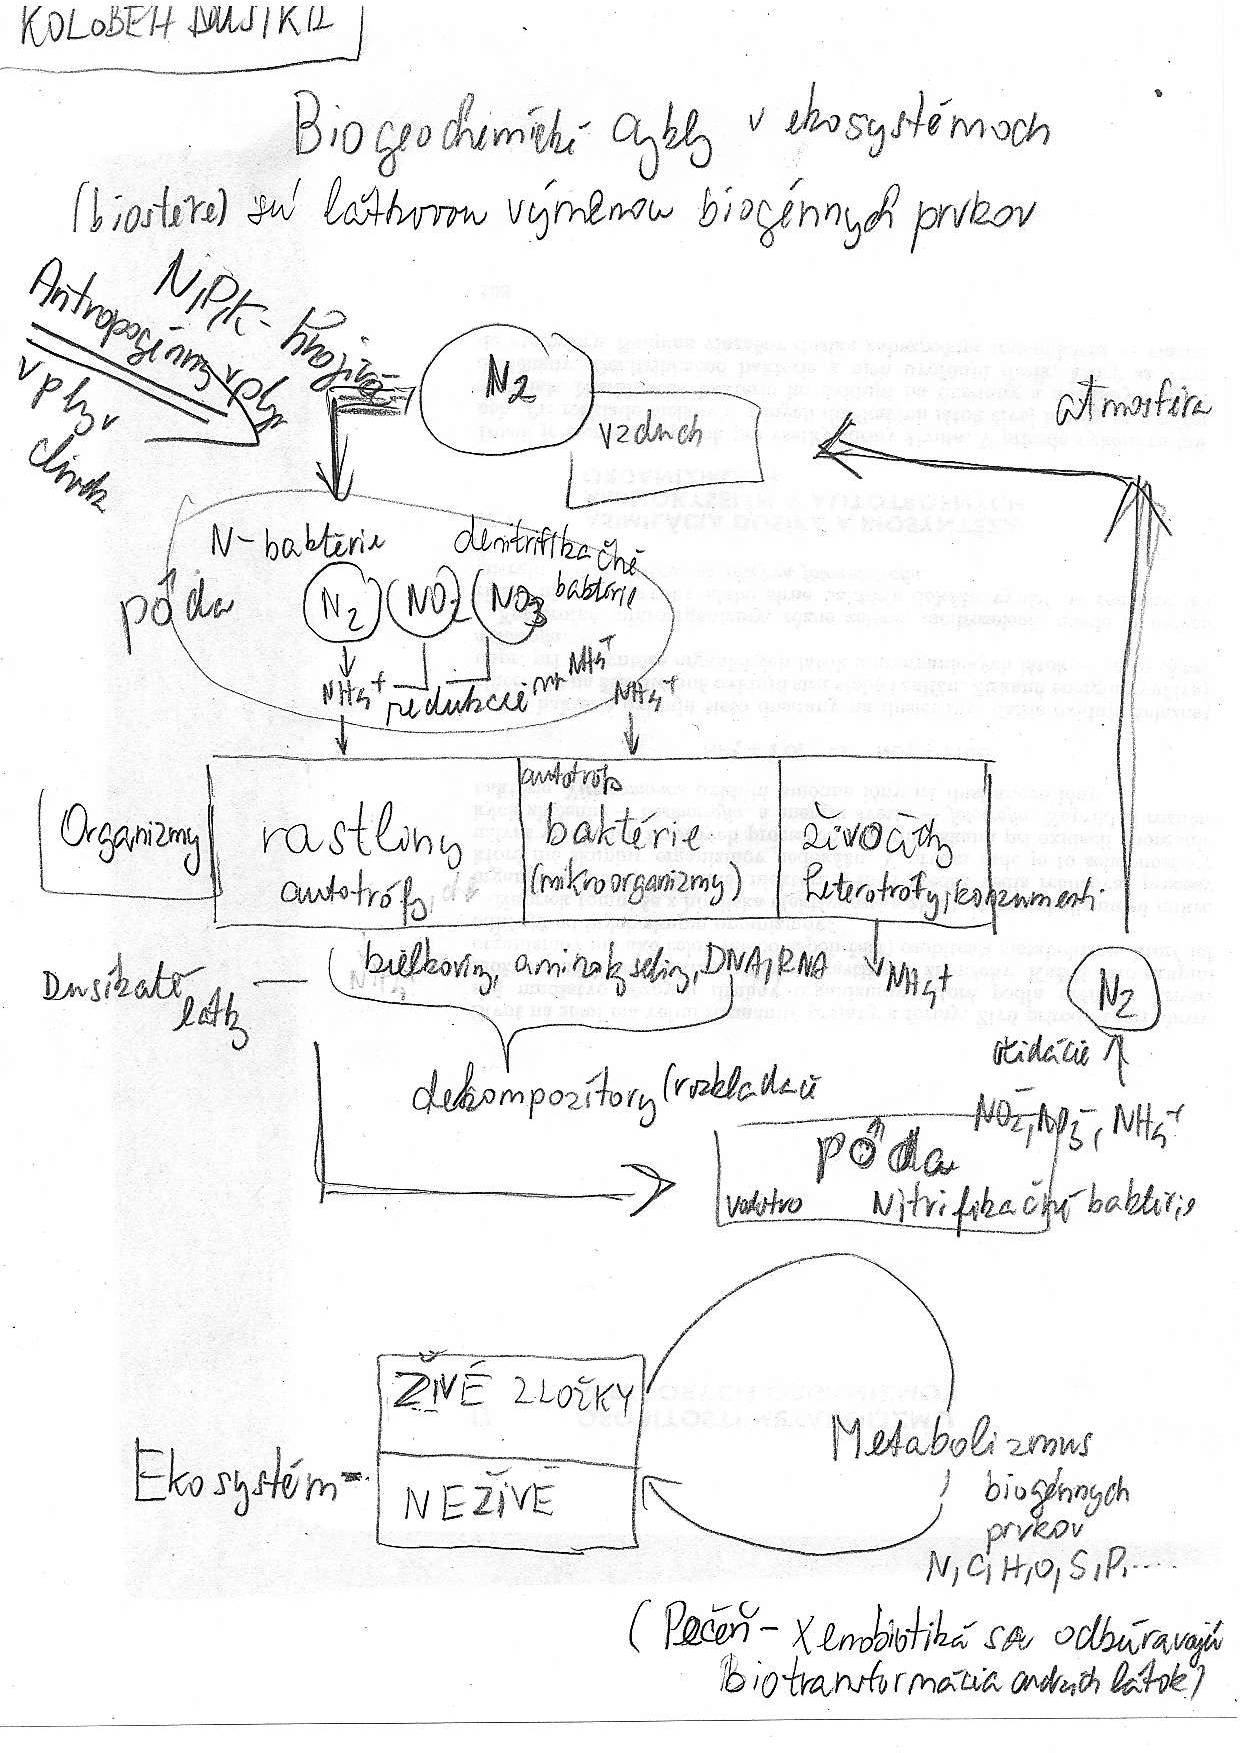 KOLOBEH DUSÍKA
Biogeochemické cykly v ekosystémoch
(biosfére) sú látkovou výmenou biogénnych prvkov
N,P,K- hnojivá
Antropogénny vplyv
vplyv
N2
vzduch
atmosféra
N-baktérie
denitrifikačné
baktérie
pôda
N2 NO2 NO3
NH4+ redukcie na NH4+ NH4+
Organizmy
rastliny
autotrófy,
autotrofy
baktérie
(mikroorganizmy)
živočíchy
heterotrofy, konzumenti
Dusíkaté
látky
bielkoviny, aminokyseliny, DNA, RNA
NH4+
N2
oxidácie
dekompozítory (rozkladače
NO2-, NO3-, NH4+
pôda
Nitrifikačné baktérie
Ekosystém-
ŽIVÉ ZLOŽKY
NEŽIVÉ
Metabolizmus
biogénnych
prvkov
N, C, H, O, S, P, ....
(Pečeň - Xenobiotiká sa odbúravajú
Biotransformácia cudzích látok)